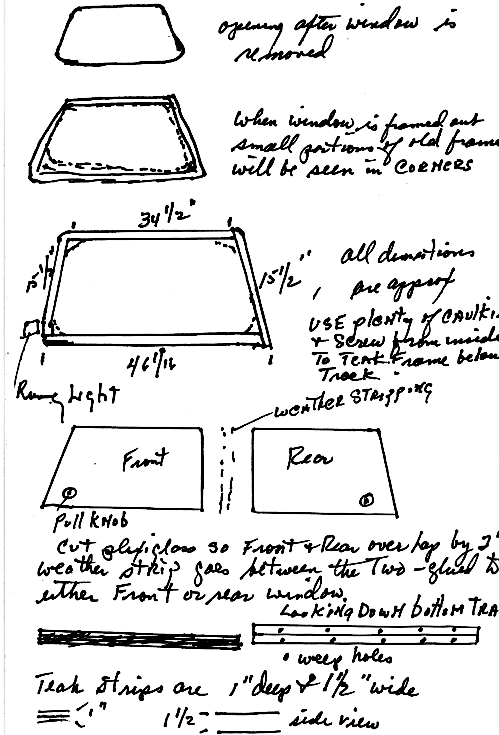 opening after window is
removed
when window is framed out
small portions of old frame
will be seen in CORNERS
34 1/2"
15 1/2
15 1/2"
all dimotions
are approx
USE plenty of CAULKI
& SCREW from inside
To TEAK Frame below
Track
46 1/16
Runng Light
WEATHER STRIPPING
Front
Rear
Pull KNOB
Cut plexiglass so Front & Rear over lap by 2"
weather strip goes between the Two - glued to
either Front or rear window.
Looking DOWN bottom TRA
• weep holes
Teak strips are 1" deep & 1 1/2" wide
1"
1 1/2
side view